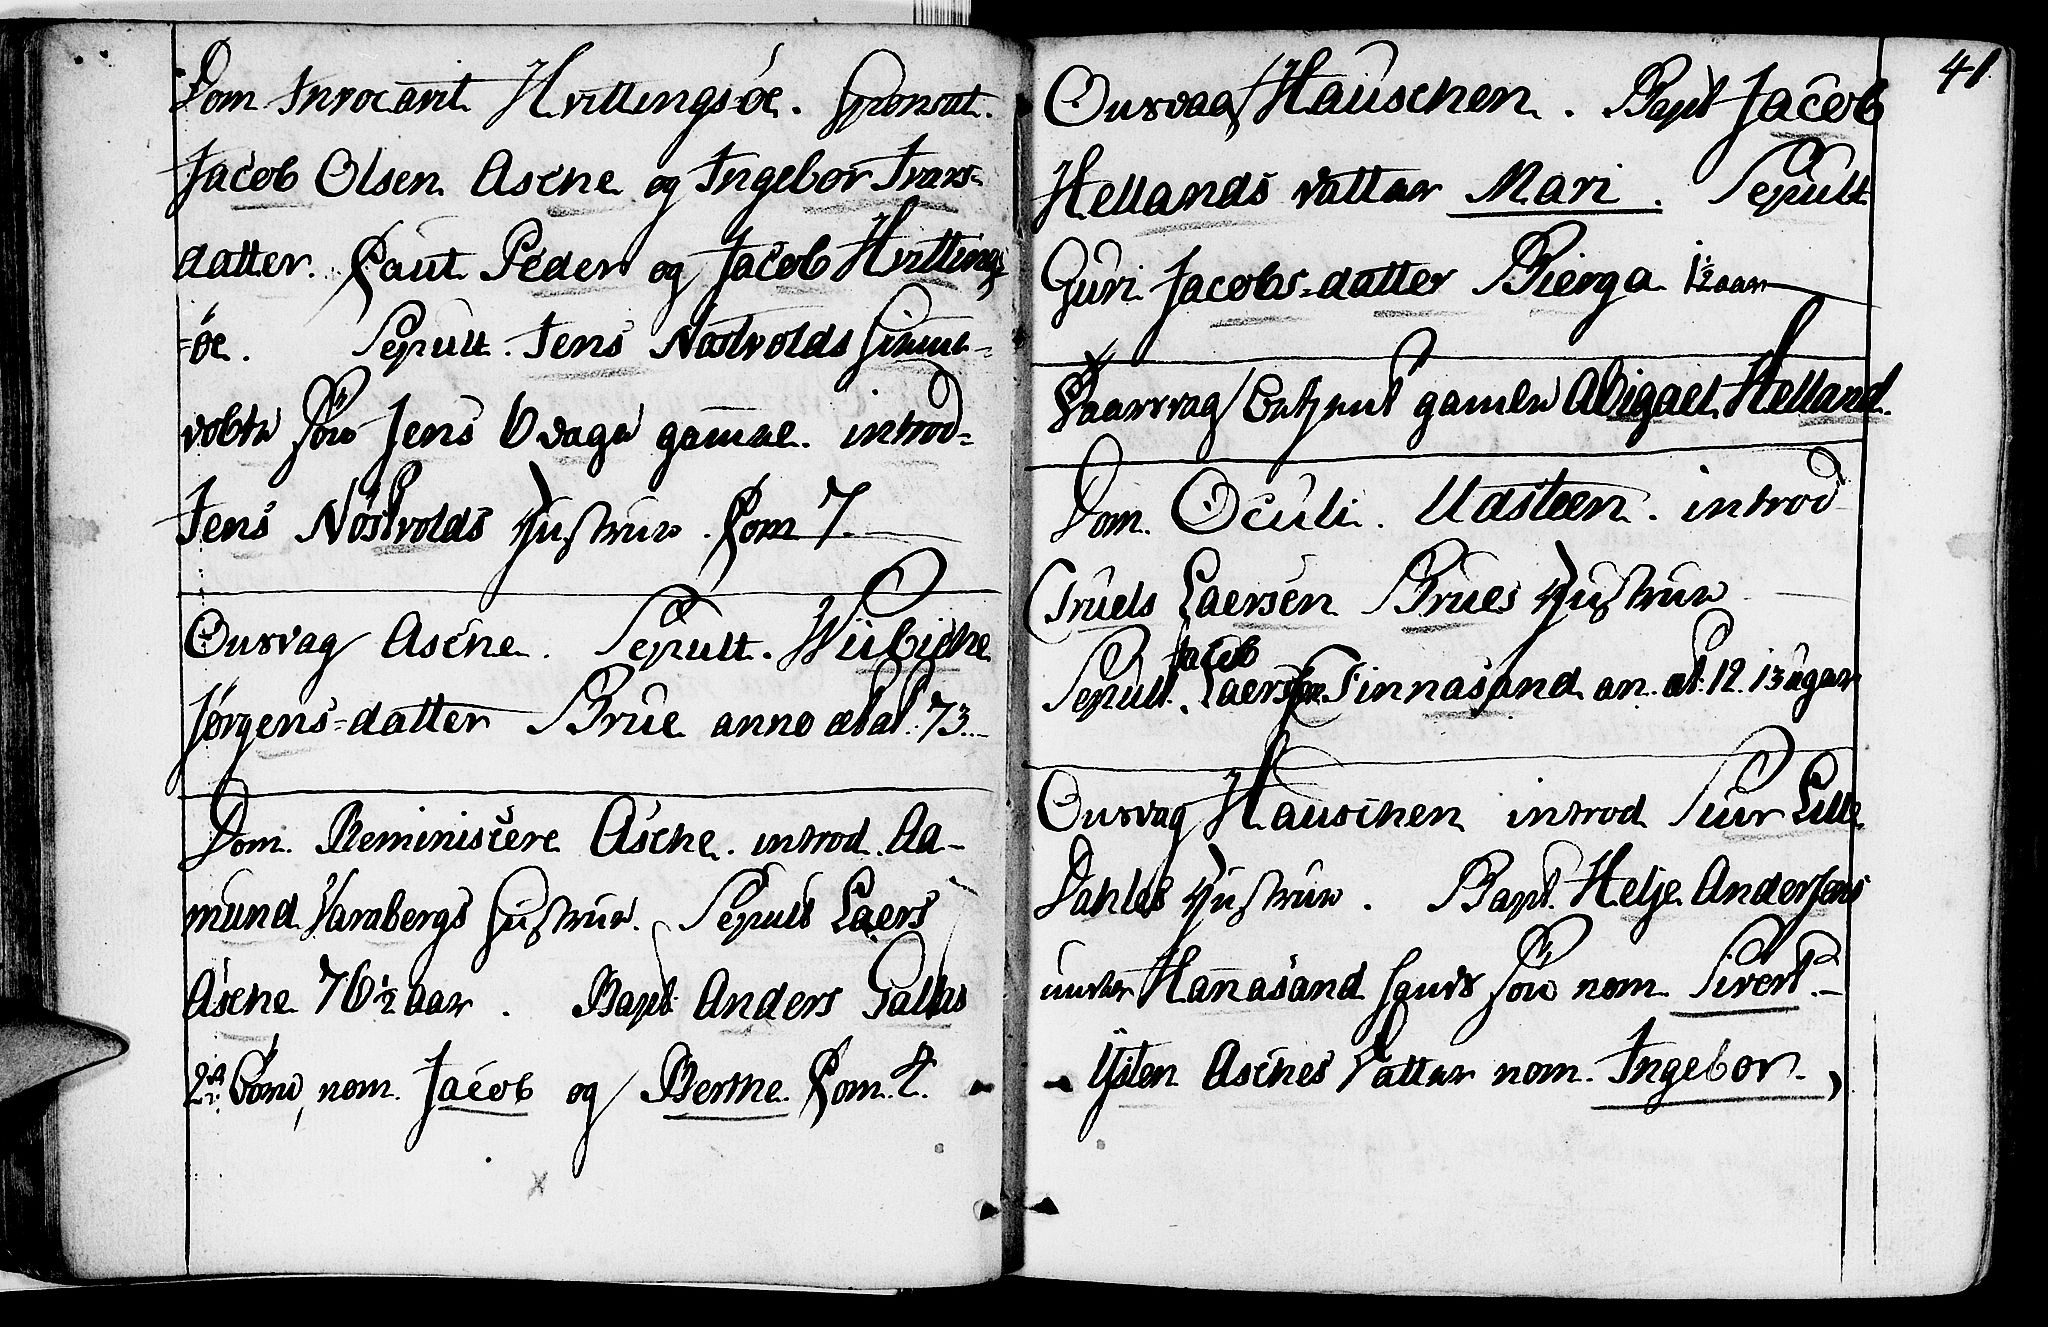 Dom Invocavit Hvittingsöe. Sponsat.
Jacob Olsen Aschne og Ingebor Ivars-
datter. Caut Peder og Jacob Hvittings
=öe. Sepult. Jens Nöstvolds hiemme-
döbte Sön Jens 6 dage gamæl. introd-
Jens Nöstvolds Hustrue. Com 7.
Onsdag Aschne. Sepult. Wiibiche
Jørgens=datter Brue anno ætat. 73.
Dom. Reminiscere Aschne. introd. Aa-
mund Varabergs Hustrue. Sepult Laers
Aschne 76 1/2 aar. Bapt. Anders Galtes
2de Börn, nom. Jacob og Berthe. Com. 2.
41
Onsdag Hauschen. Bapt Jacob
Hellands datter Mari. Sepult
Guri Jacobs=datter Bierga 1 1/2 aar
Løverdag gamle Abigael Helland.
Dom. Oculi. Udsteen. introd
Truels Laersen Brues Hustrue
Jacob
Sepult. Laersen Finnasand an. æt. 12. 13 uger
Onsdag Hauschen introd Siur Lille
Dahles Hustrue. Bapt. Helje Andersens
under Hanasand hands Sön nom. Sivert.
Ysten Aschnes Datter nom. Ingebor.